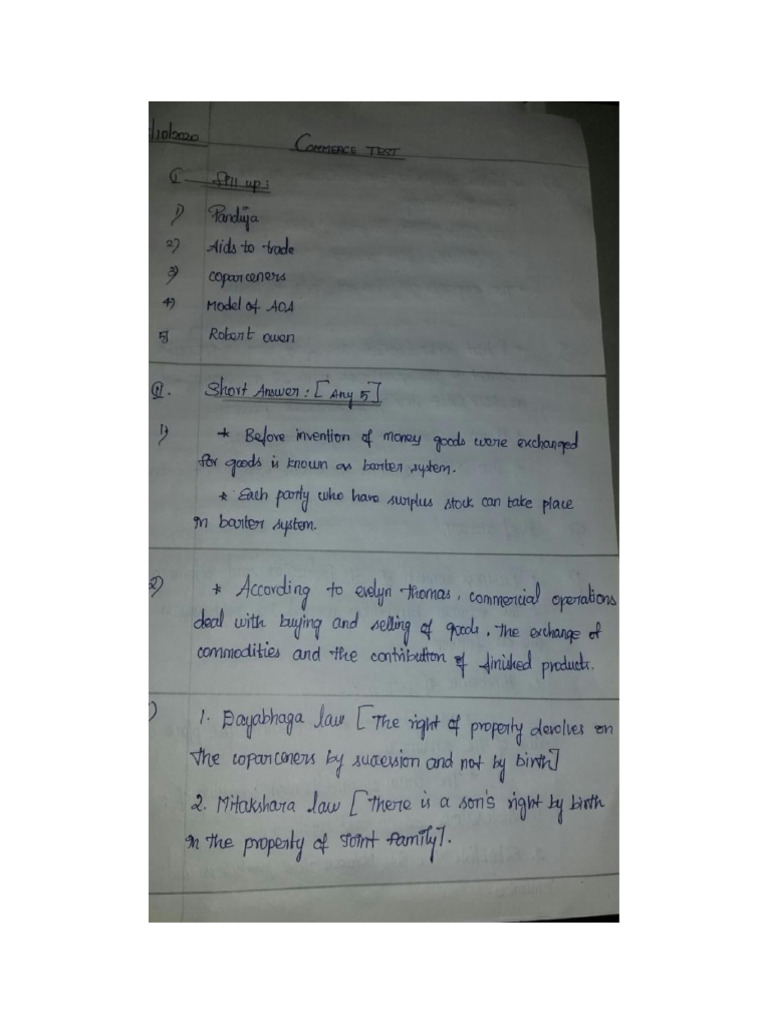 /10/2020
COMMERCE TEST
I Fill up:
1) Pandiya
2) Aids to trade
3) coparceners
4) Model of AOA
5) Robert owen
II. Short Answer: [Any 5]
1) * Before invention of money goods were exchanged
for goods is known as barter system.
* Each party who have surplus stock can take place
in barter system.
2) * According to evelyn thomas, commercial operations
deal with buying and selling of goods, the exchange of
commodities and the contribution of finished products.
) 1. Dayabhaga law [The right of property devolves on
the coparceners by sucession and not by birth]
2. Mitakshara law [There is a son's right by birth
in the property of Joint family].